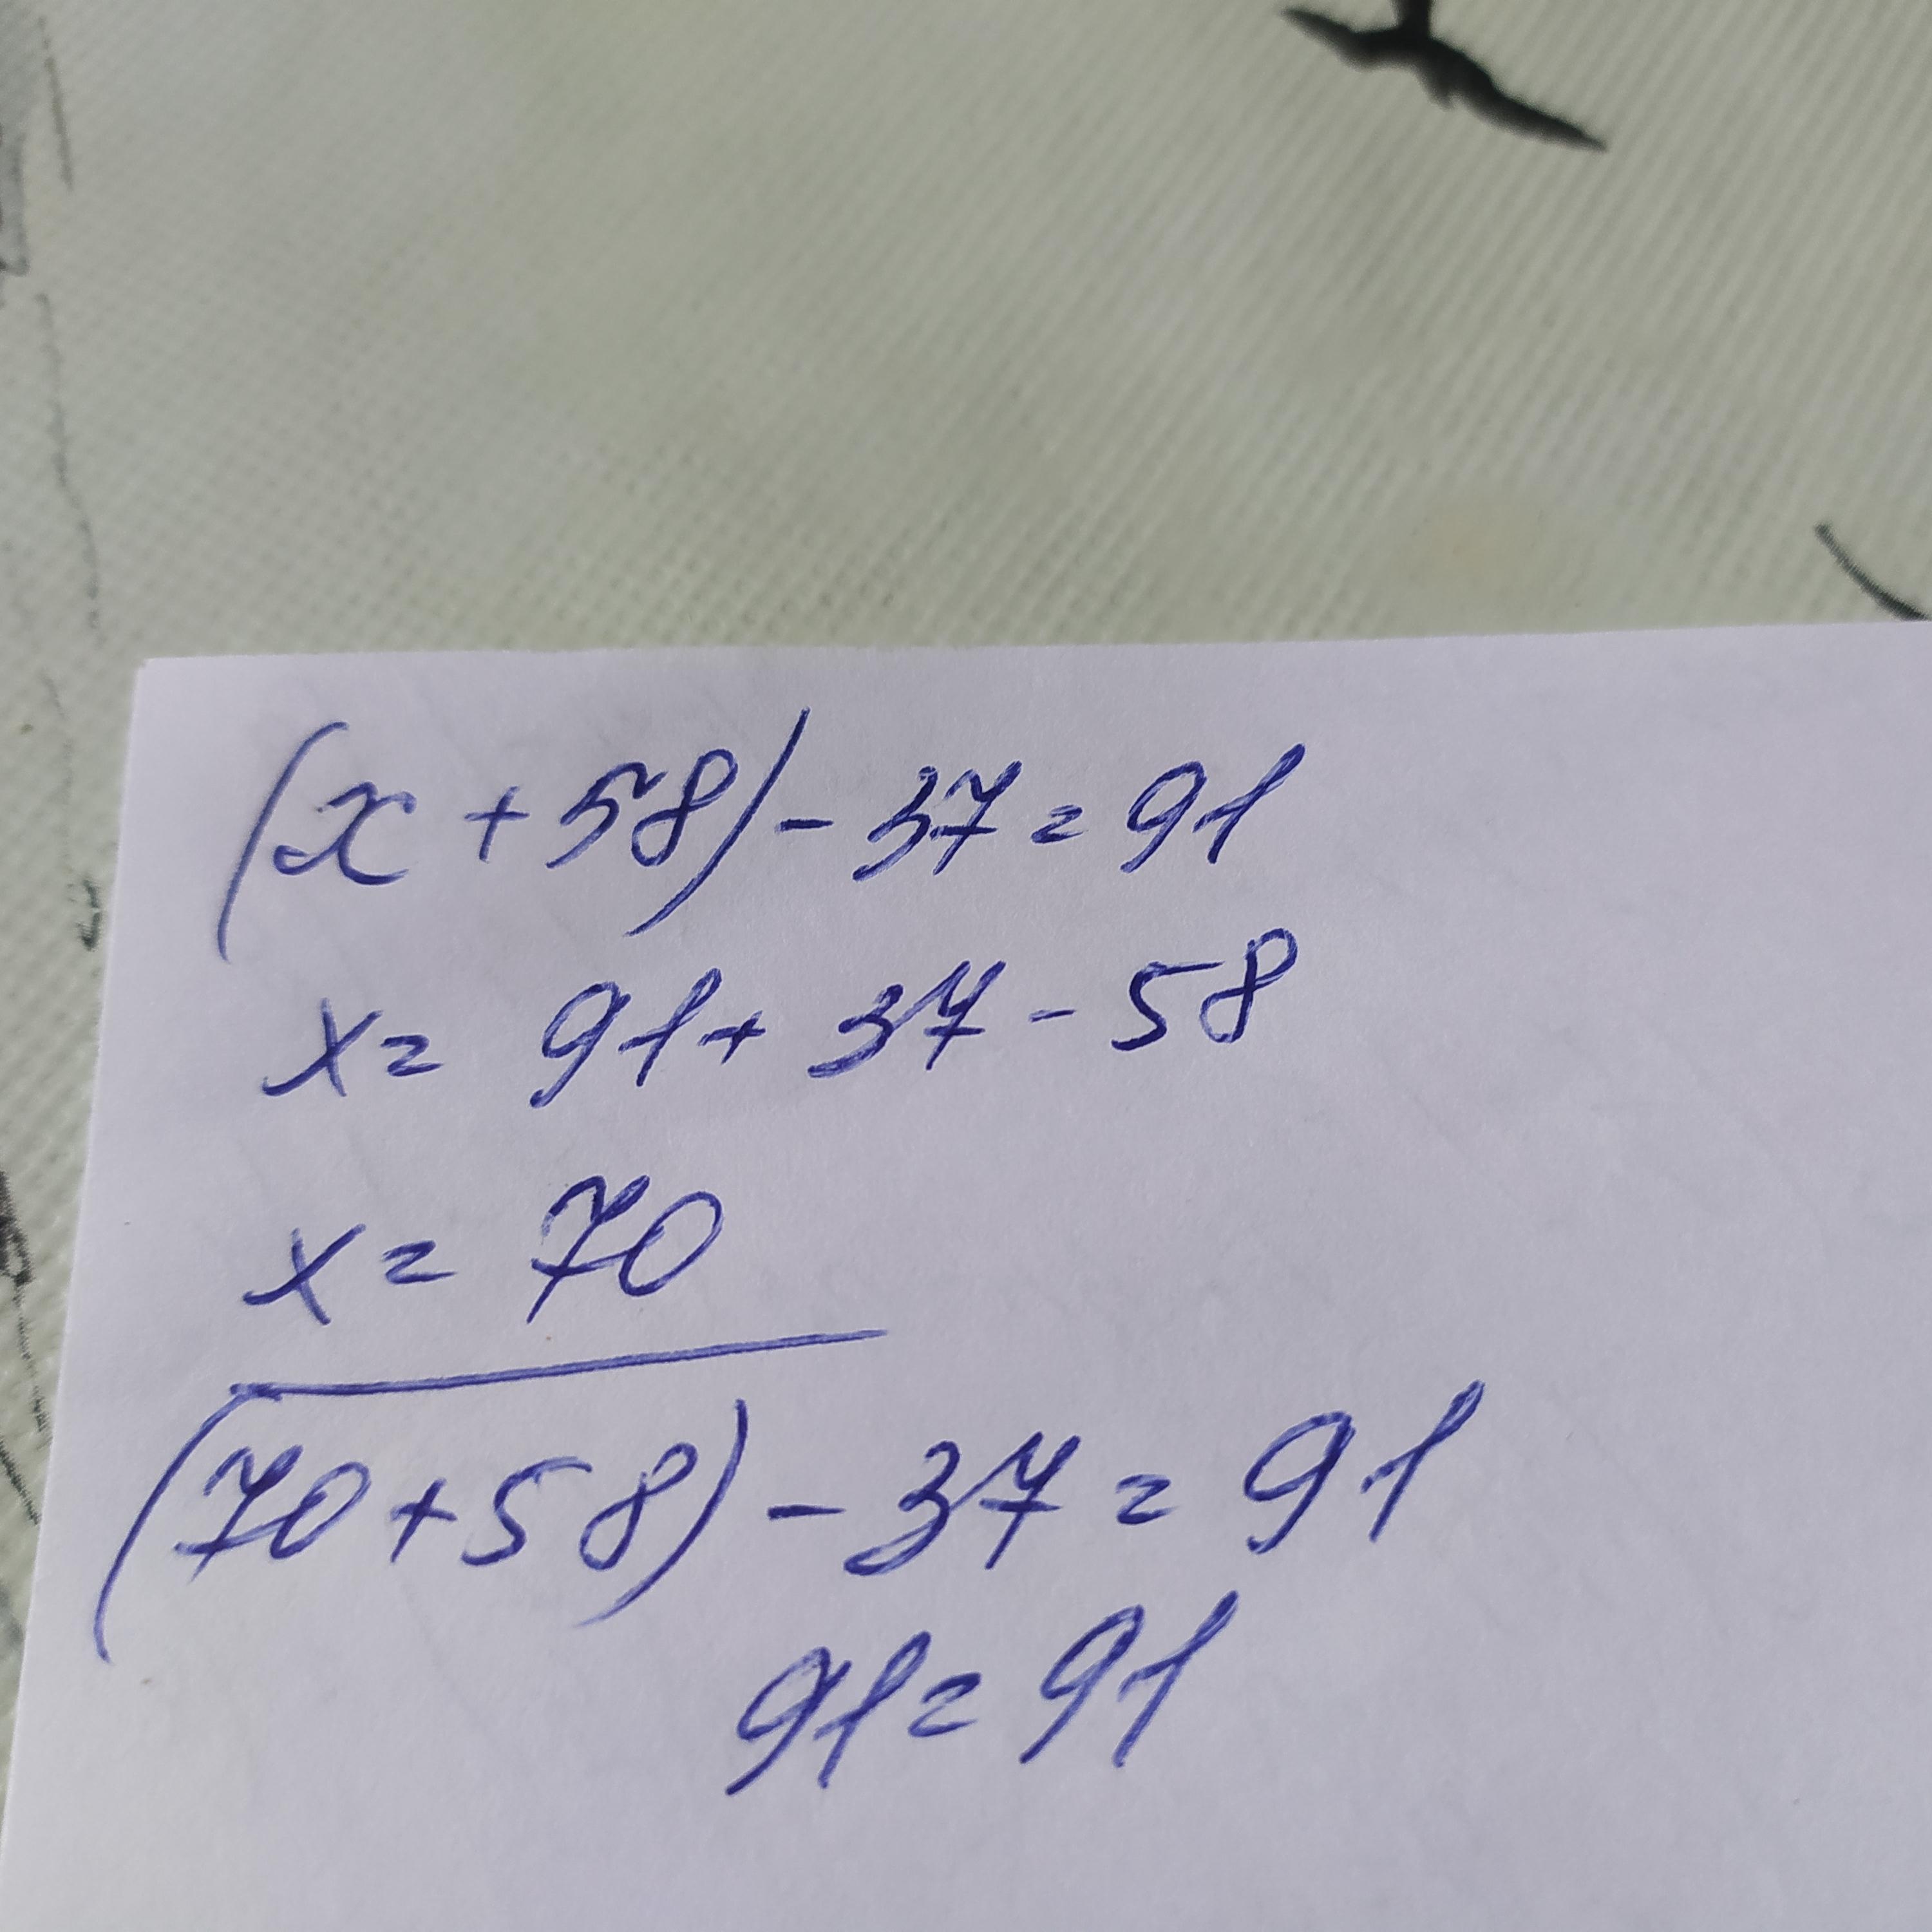 (x + 58) - 37 = 91
x = 91 + 37 - 58
x = 70
(70 + 58) - 37 = 91
91 = 91